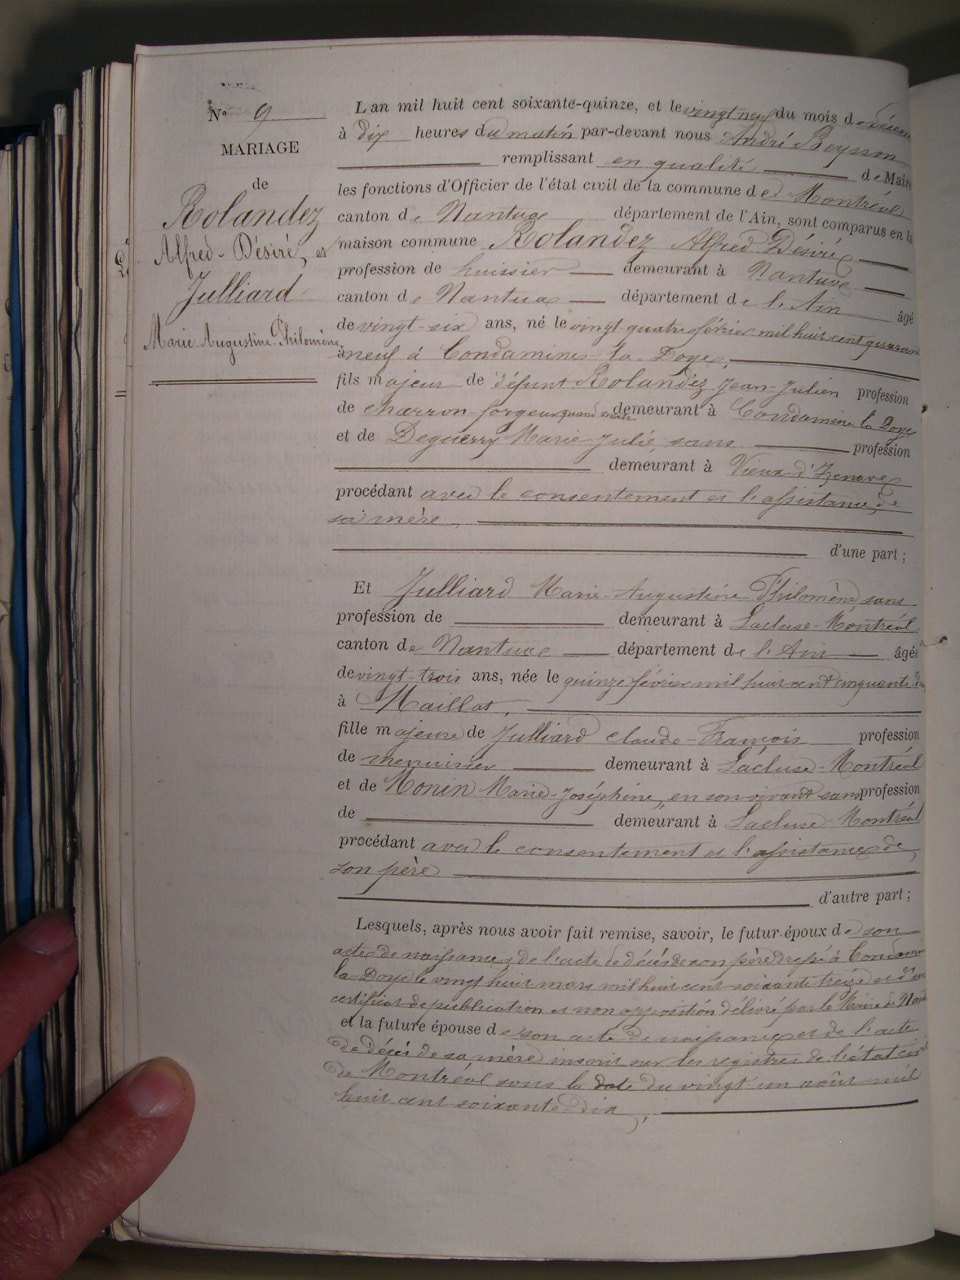 N° 9
MARIAGE
de
Rolandez
Alfred-Désiré, et
Julliard
Marie Augustine Philomène
L'an mil huit cent soixante-quinze, et le vingt neuf du mois de
à dix heures du matin par-devant nous André Reysson
remplissant en qualité de Maire
les fonctions d'Officier de l'état civil de la commune de Montréal
canton de Nantua département de l'Ain, sont comparus en la
maison commune Rolandez Alfred Désiré
profession de huissier demeurant à Nantua
canton de Nantua département de l'Ain âgé
de vingt-six ans, né le vingt quatre février mil huit cent quarante
neuf à Condamine-la-Doye,
fils majeur de défunt Rolandez Jean-Julien profession
de charron-forgeur quand vivait demeurant à Condamine la Doye
et de Deguerry Marie Julie, sans profession
demeurant à Vieux d'Izenave
procédant avec le consentement et l'assistance de
sa mère,
d'une part ;
Et Julliard Marie-Augustine-Philomène sans
profession de demeurant à Lacluse-Montréal
canton de Nantua département de l'Ain âgée
de vingt-trois ans, née le quinze février mil huit cent cinquante deux
à Maillat,
fille majeure de Julliard Claude-François profession
de menuisier demeurant à Lacluse-Montréal
et de Monin Marie-Joséphine, en son vivant sans profession
de demeurant à Lacluse-Montréal
procédant avec le consentement et l'assistance de
son père
d'autre part ;
Lesquels, après nous avoir fait remise, savoir, le futur époux de son
acte de naissance, de l'acte de décès de son père dressé à Condamine
la Doye le vingt huit mars mil huit cent soixante treize et d'un
certificat de publication et non opposition délivré par le Maire de
et la future épouse de son acte de naissance et de l'acte
de décès de sa mère inscrit sur les registres de l'état civil
de Montréal sous la date du vingt un août mil
huit cent soixante dix,